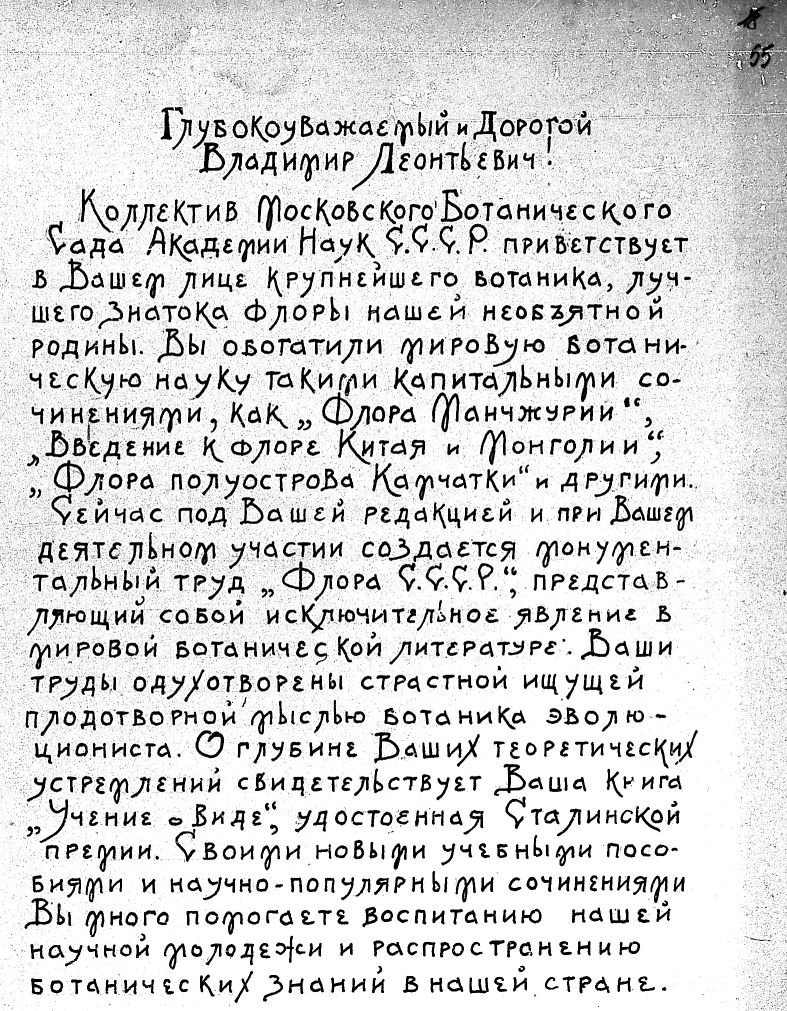 18
55
Глубокоуважаемый и Дорогой
Владимир Леонтьевич!
Коллектив Московского Ботанического
Сада Академии Наук С.С.С.Р. приветствует
в Вашем лице крупнейшего ботаника, луч-
шего знатока флоры нашей необъятной
родины. Вы обогатили мировую ботани-
ческую науку такими капитальными со-
чинениями, как „Флора Манчжурии“,
„Введение к флоре Китая и Монголии“,
„Флора полуострова Камчатки“ и другими.
Сейчас под Вашей редакцией и при Вашем
деятельном участии создается монумен-
тальный труд „Флора С.С.С.Р.“, представ-
ляющий собой исключительное явление в
мировой ботанической литературе. Ваши
труды одухотворены страстной ищущей
плодотворной мыслью ботаника эволю-
циониста. О глубине Ваших теоретических
устремлений свидетельствует Ваша книга
„Учение о виде“, удостоенная Сталинской
премии. Своими новыми учебными посо-
биями и научно-популярными сочинениями
Вы много помогаете воспитанию нашей
научной молодежи и распространению
ботанических знаний в нашей стране.